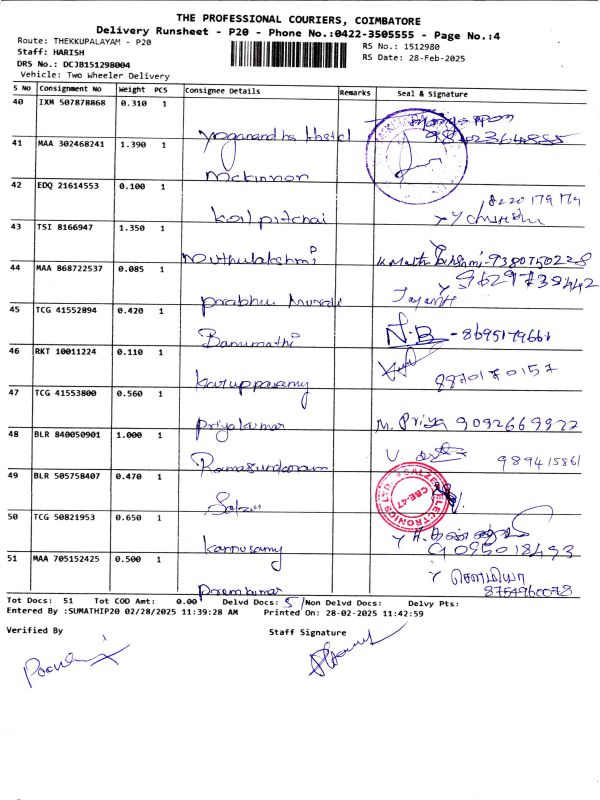 THE PROFESSIONAL COURIERS, COIMBATORE
Delivery Runsheet - P20 - Phone No.:0422-3505555 - Page No.:4
Route: THEKKUPALAYAM - P20
RS No.: 1512980
Staff: HARISH
RS Date: 28-Feb-2025
DRS No.: DCJB151298004
Vehicle: Two Wheeler Delivery
S No Consignment No Weight PCS Consignee Details Remarks Seal & Signature
40 IXM 507878868 0.310 1
yoganandha
41 MAA 302468241 1.390 1
mckinnon
42 EDQ 21614553 0.100 1
8220179179
koil pitchai
43 TSI 8166947 1.350 1
muthulakshmi 9380750228
44 MAA 868722537 0.085 1
9629738442
prabhu murali Jayanth
45 TCG 41552894 0.420 1
Banumathi N.B - 8695179661
46 RKT 10011224 0.110 1
karuppasamy 8870170157
47 TCG 41553800 0.560 1
priyakumar M. Priya 9092669977
48 BLR 840050901 1.000 1
Ramasundaram 989415861
49 BLR 505758407 0.470 1
SALZER ELECTRONICS LTD.
CBE-47
Salzer
50 TCG 50821953 0.650 1
karrusamy 9095018493
51 MAA 705152425 0.500 1
சௌமியா
premkumar 8754960078
Tot Docs: 51 Tot COD Amt: 0.00 Delvd Docs: 51 Non Delvd Docs: Delvy Pts:
Entered By :SUMATHIP20 02/28/2025 11:39:28 AM Printed On: 28-02-2025 11:42:59
Verified By Staff Signature